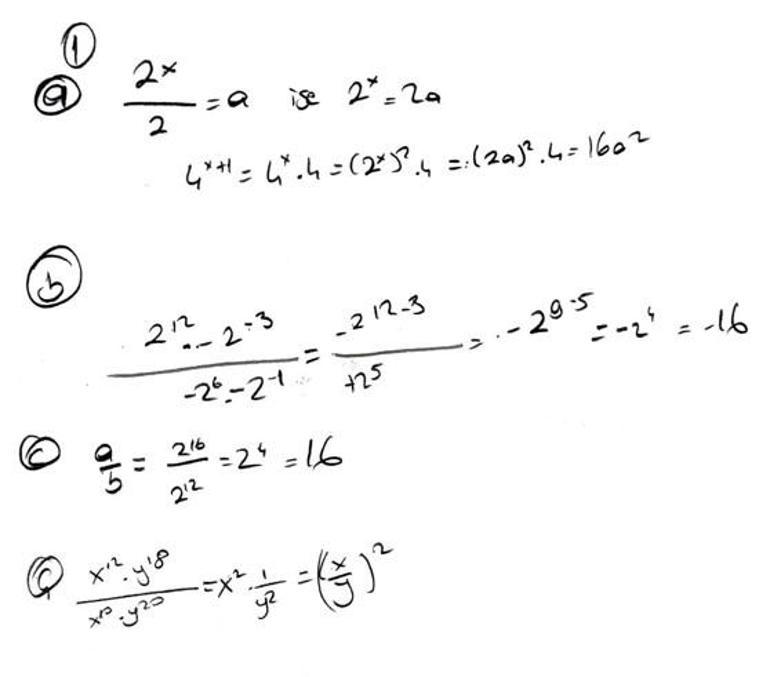 ①
ⓐ 2^x/2 = a ise 2^x = 2a
4^(x+1) = 4^x . 4 = (2^x)^2 . 4 = (2a)^2 . 4 = 16a^2
ⓑ (2^12 . -2^-3)/(-2^6 . -2^-1) = (-2^(12-3))/(+2^5) = -2^(9-5) = -2^4 = -16
ⓒ a/b = 2^16/2^12 = 2^4 = 16
ⓒ̧ (x^12 . y^18)/(x^10 . y^20) = x^2 . 1/y^2 = (x/y)^2